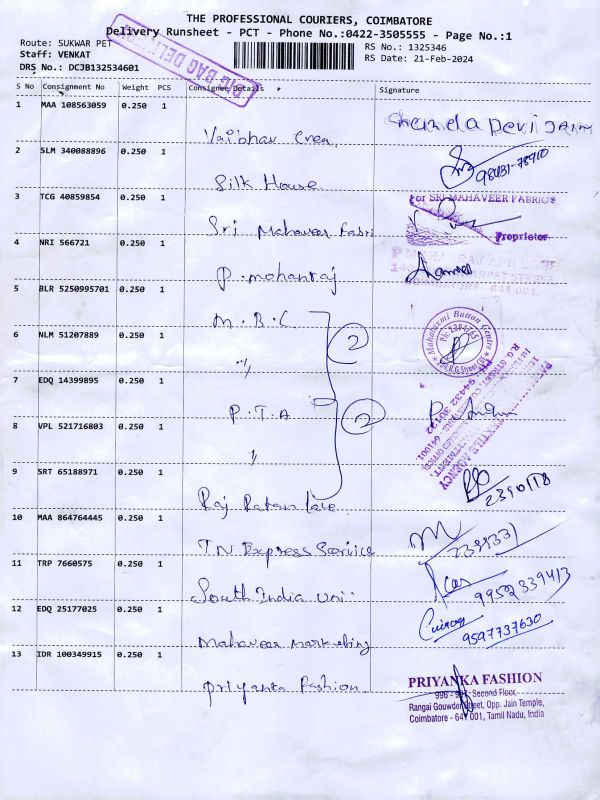 THE PROFESSIONAL COURIERS, COIMBATORE
Delivery Runsheet - PCT - Phone No.:0422-3505555 - Page No.:1
Route: SUKWAR PET
Staff: VENKAT
DRS No.: DCJB132534601
RS No.: 1325346
RS Date: 21-Feb-2024
BIG BAG DELIVERY
S No Consignment No Weight PCS Consignee Details Signature
1 MAA 108563059 0.250 1
Vaibhav Crea.
2 SLM 340088896 0.250 1
Silk House
98431-78910
3 TCG 40859854 0.250 1
Sri Mahaveer Fabri
For SRI MAHAVEER FABRICS
Proprietor
4 NRI 566721 0.250 1
P. mohanraj
5 BLR 5250995701 0.250 1
M. B. C
6 NLM 51207889 0.250 1
"
2
Mahalaxmi Button Centre
7 EDQ 14399895 0.250 1
P. T. A
2
8 VPL 521716803 0.250 1
"
9 SRT 65188971 0.250 1
Raj Ratan lace
10 MAA 864764445 0.250 1
TN Express Service
11 TRP 7660575 0.250 1
South India Uni
9952339413
12 EDQ 25177025 0.250 1
Mahaveer marketing
9597737630
13 IDR 100349915 0.250 1
Priyanka Fashion
PRIYANKA FASHION
Second Floor,
Rangai Gowder Street, Opp. Jain Temple,
Coimbatore - 641 001, Tamil Nadu, India